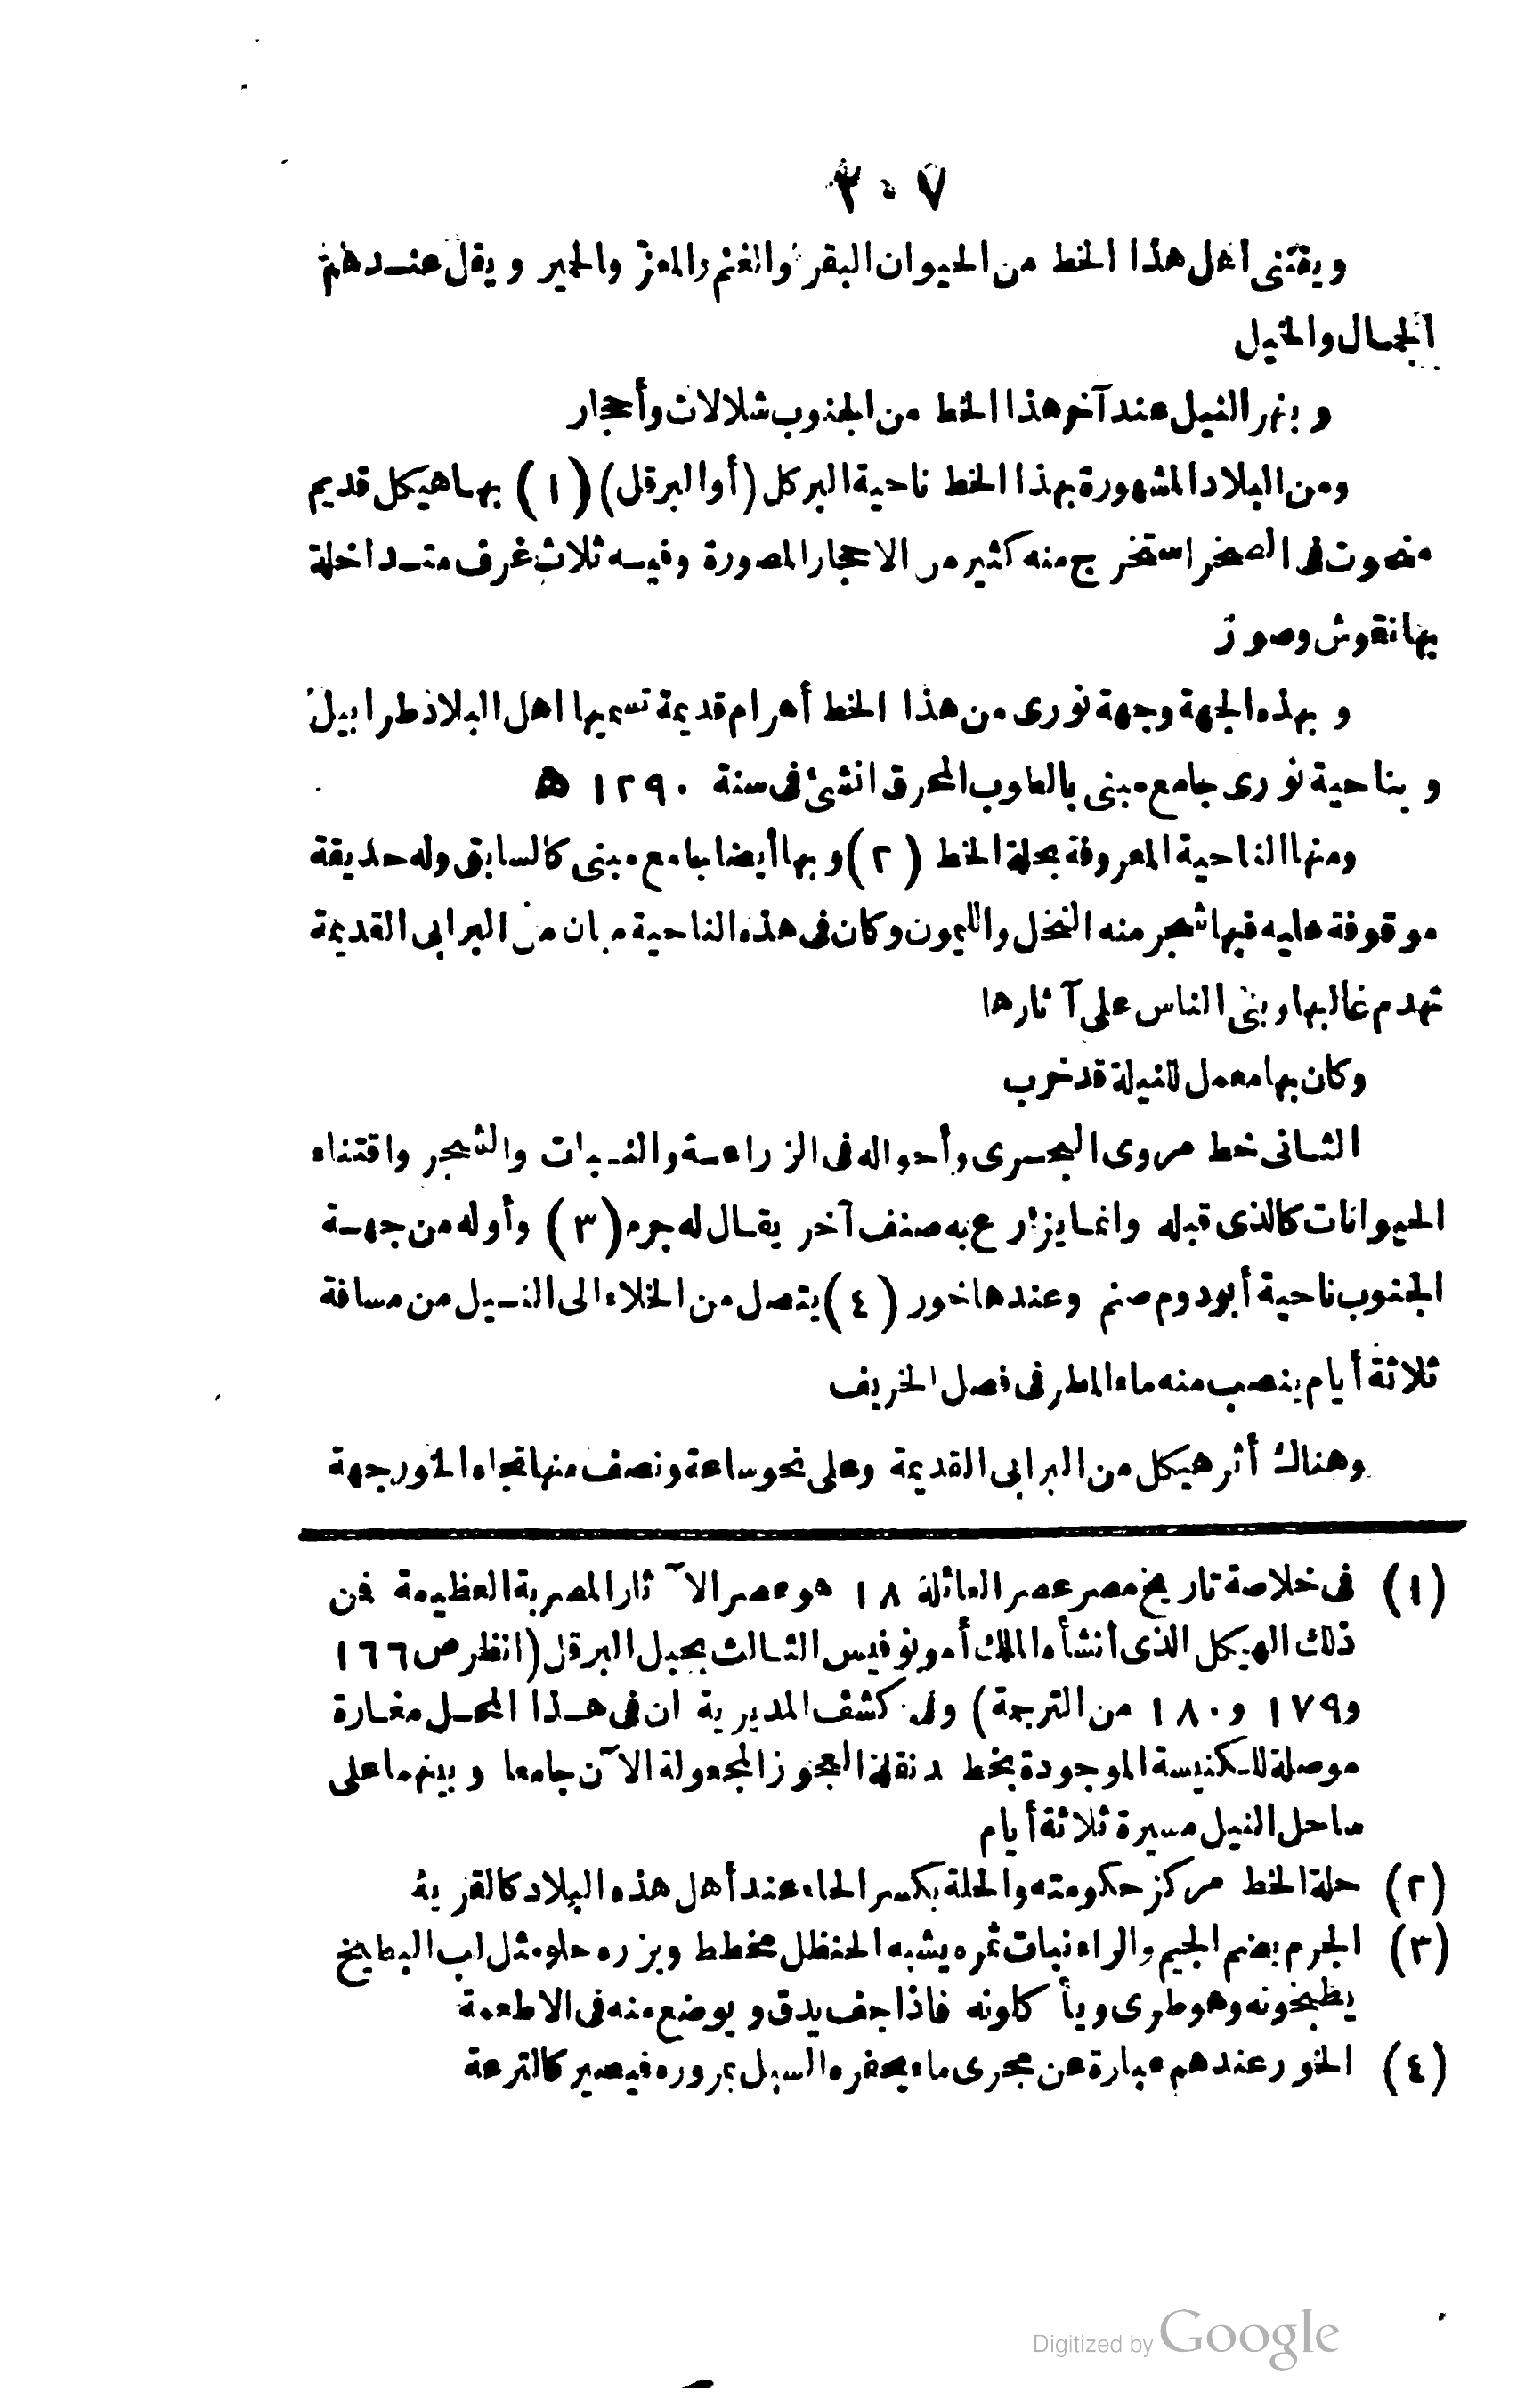 ٢٠٧
ويقتنى اهل هذا الخط من الحيوان البقر والغنم والمعز والحمير ويقل عندهم
الجمال والخيل
وبنهر النيل عند آخر هذا الخط من الجنوب شلالات وأحجار
ومن البلاد المشهورة بهذا الخط ناحية البركل (أو البرقل) (١) بها هيكل قديم
منحوت فى الصخر استخرج منه كثير من الاحجار المصورة وفيه ثلاث غرف متداخلة
بها نقوش وصور
وبهذه الجهة وجهة نورى من هذا الخط أهرام قديمة تسميها اهل البلاد طرابيل
وبناحية نورى جامع مبنى بالطوب المحرق انشئ فى سنة ١٢٩٠ ه
ومنها الناحية المعروفة بحلة الخط (٢) وبها أيضا جامع مبنى كالسابق وله حديقة
موقوفة عليه فيها شجر منه النخل والليمون وكان فى هذه الناحية مبان من البرابى القديمة
تهدم غالبها وبنى الناس على آثارها
وكان بها معمل للنيلة قد خرب
الثانى خط مروى البحرى وأحواله فى الزراعة والنبات والشجر واقتناء
الحيوانات كالذى قبله وانما يزارع به صنف آخر يقال له جرم (٣) وأوله من جهة
الجنوب ناحية أبودوم صنم وعندها خور (٤) يتصل من الخلاء الى النيل من مسافة
ثلاثة أيام ينصب منه ماء المطر فى فصل الخريف
وهناك أثر هيكل من البرابى القديمة وعلى نحو ساعة ونصف منها تجاه الخور جهة
(١) فى خلاصة تاريخ مصر عصر العائلة ١٨ هو عصر الآثار المصرية العظيمة فمن
ذلك الهيكل الذى أنشأه الملك أمونوفيس الثالث بجبل البرقل (انظر ص ١٦٦
و١٧٩ و١٨٠ من الترجمة) وفى كشف المديرية ان فى هذا المحل مغارة
موصلة للكنيسة الموجودة بخط دنقلة العجوز المجعولة الآن جامعا وبينهما على
ساحل النيل مسيرة ثلاثة أيام
(٢) حلة الخط مركز حكومته والحلة بكسر الحاء عند أهل هذه البلاد كالقرية
(٣) الجرم بضم الجيم والراء نبات ثمره يشبه الحنظل مخطط وبزره حلو مثل لب البطيخ
يطبخونه وهو طرى ويأكلونه فاذا جف يدق ويوضع منه فى الاطعمة
(٤) الخور عندهم عبارة عن مجرى ماء يحفره السيل بمروره فيصير كالترعة
Digitized by Google